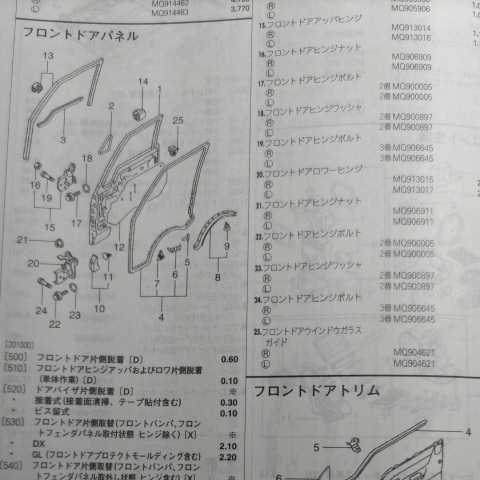 MQ914462
Ⓛ MQ914463 3,770
フロントドアパネル
13
14
1
2
25
3
18
16
19
17
15
21
12
20
11
24
23
22
10
7
6
5
9
8
4
[301000]
[500] フロントドア片側脱着 [D] 0.60
[510] フロントドアヒンジアッパおよびロワ片側脱着
(単体作業) [D] 0.10
[520] ドアバイザ片側脱着 [D] ※
〃 接着式(接着面清掃、テープ貼付含む) 0.30
〃 ビス留式 0.10
[530] フロントドア片側取替(フロントバンパ、フロン
トフェンダパネル取付状態 ヒンジ除く) [X] ※
〃 DX 2.10
〃 GL (フロントドアプロテクトモールディング含む) 2.20
[540] フロントドア片側取替(フロントバンパ、フロン
Ⓛ MQ905906
15.フロントドアアッパヒンジ
Ⓡ MQ913014
Ⓛ MQ913016
16.フロントドアヒンジナット
Ⓡ MQ906909
Ⓛ MQ906909
17.フロントドアヒンジボルト
Ⓡ 2個 MQ900005
Ⓛ 2個 MQ900005
18.フロントドアヒンジワッシャ
Ⓡ 2個 MQ900897
Ⓛ 2個 MQ900897
19.フロントドアヒンジボルト
Ⓡ 3個 MQ906645
Ⓛ 3個 MQ906645
20.フロントドアロワーヒンジ
Ⓡ MQ913015
Ⓛ MQ913017
21.フロントドアヒンジナット
Ⓡ MQ906911
Ⓛ MQ906911
22.フロントドアヒンジボルト
Ⓡ 2個 MQ900005
Ⓛ 2個 MQ900005
23.フロントドアヒンジワッシャ
Ⓡ 2個 MQ900897
Ⓛ 2個 MQ900897
24.フロントドアヒンジボルト
Ⓡ 3個 MQ906645
Ⓛ 3個 MQ906645
25.フロントドアウインドウガラス
ガイド
Ⓡ MQ904621
Ⓛ MQ904621
フロントドアトリム
4
5
6